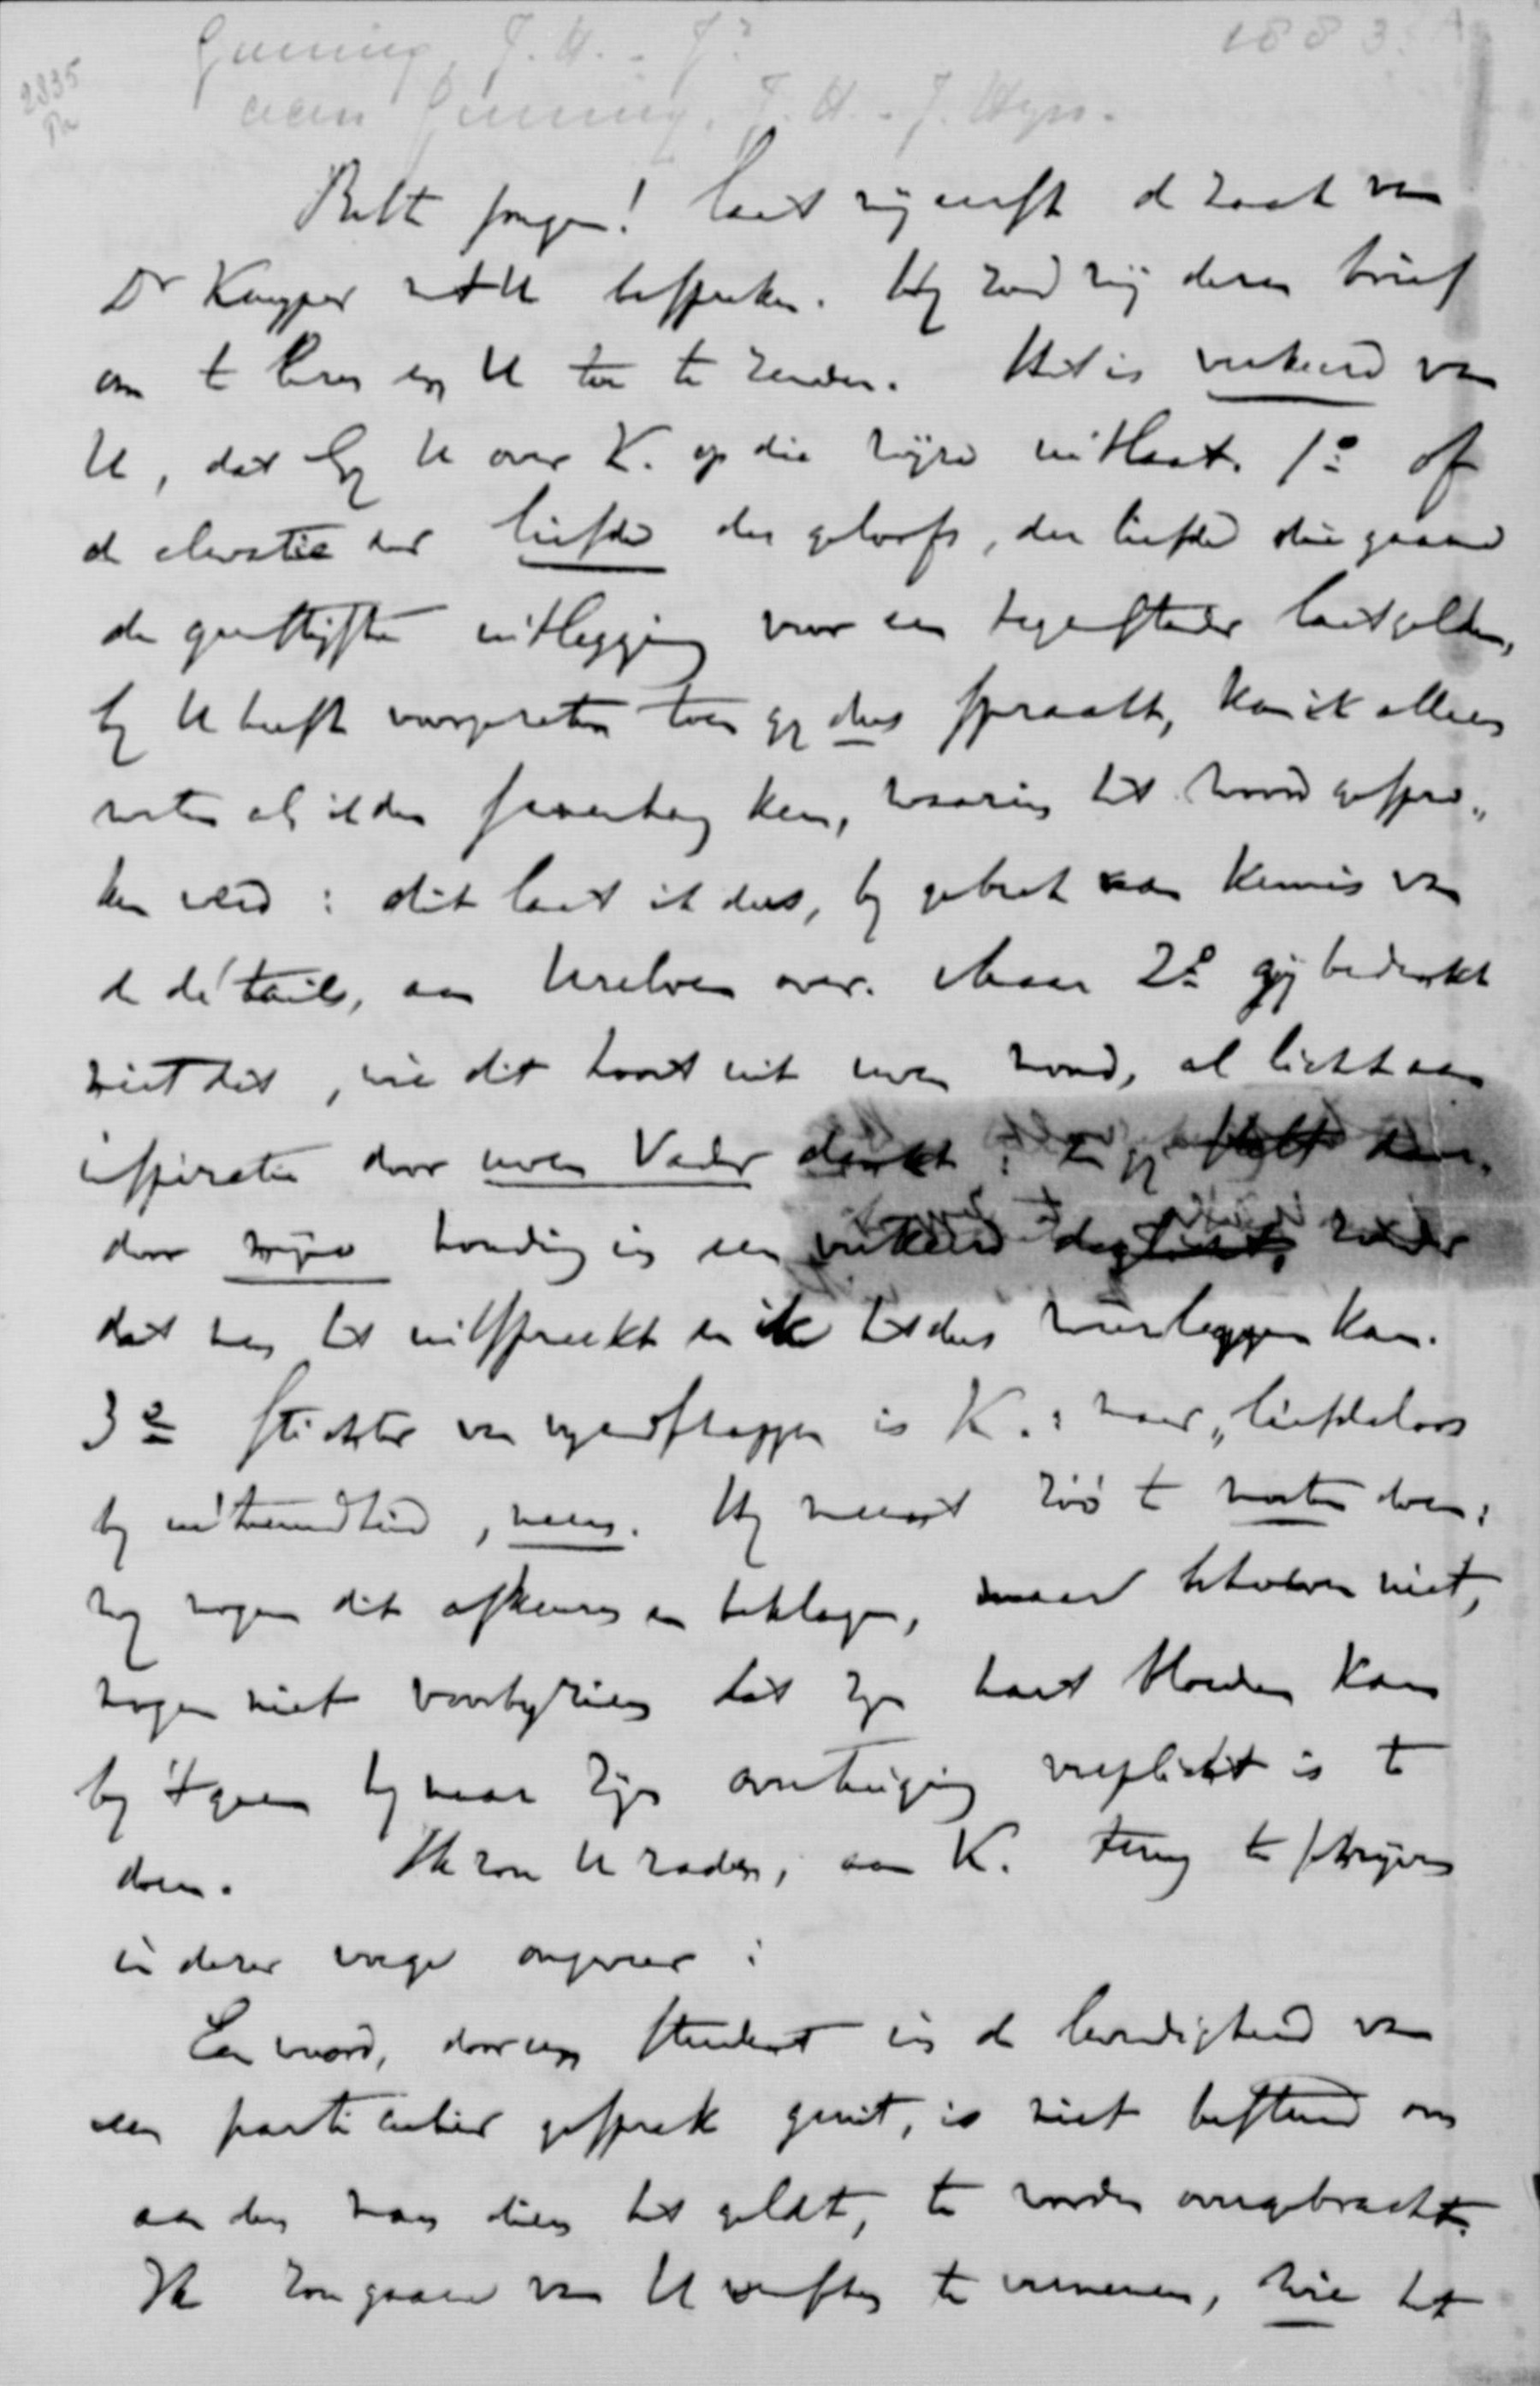 Gunning, J. H. - Jr
1883.
2835
aan Gunning, J. H. - J. Hzn.
Beste jongen! laat mij eerst de zaak van
Dr Kuyper met U bespreken. Hij zond mij dezen brief
om te lezen en U toe te zenden. Het is verkeerd van
U, dat Gij U over K. op die wijze uitlaat. 1o of
de elevatie der liefde des geloofs, der liefde die gaarne
de gunstigste uitlegging voor een tegenstander laat gelden,
bij U heeft voorgezeten toen gij dus spraakt, kan ik alleen
weten als ik den samenhang ken, waarin het woord gespro„
ken werd : dit laat ik dus, bij gebrek aan kennis van
de détails, aan Uzelven over. Maar 2o gij bedenkt
niet dat, wie dit hoort uit uwen mond, al licht aan
inspiratie door uwen Vader denkt : en gij stelt dan
door mijne houding in een verkeerd daglicht, zonder
dat men het uitspreekt en ik het dus weerleggen kan.
3o Stichter van vijandschappen is K. : maar „liefdeloos
bij uitnemendheid, neen. Hij meent zóó te moeten doen :
wij mogen dit afkeuren en beklagen, maar behoeven niet,
mogen niet voorbijzien dat zijn hart bloeden kan
bij 'tgeen hij naar zijn overtuiging verplicht is te
doen. Ik zou U raden, aan K. terug te schrijven
in dezer voege ongeveer :
Een woord, door een student in de levendigheid van
een particulier gesprek geuit, is niet bestemd om
aan den man dien het geldt, te worden overgebracht.
Ik zou gaarne van U wenschen te vernemen, wie het